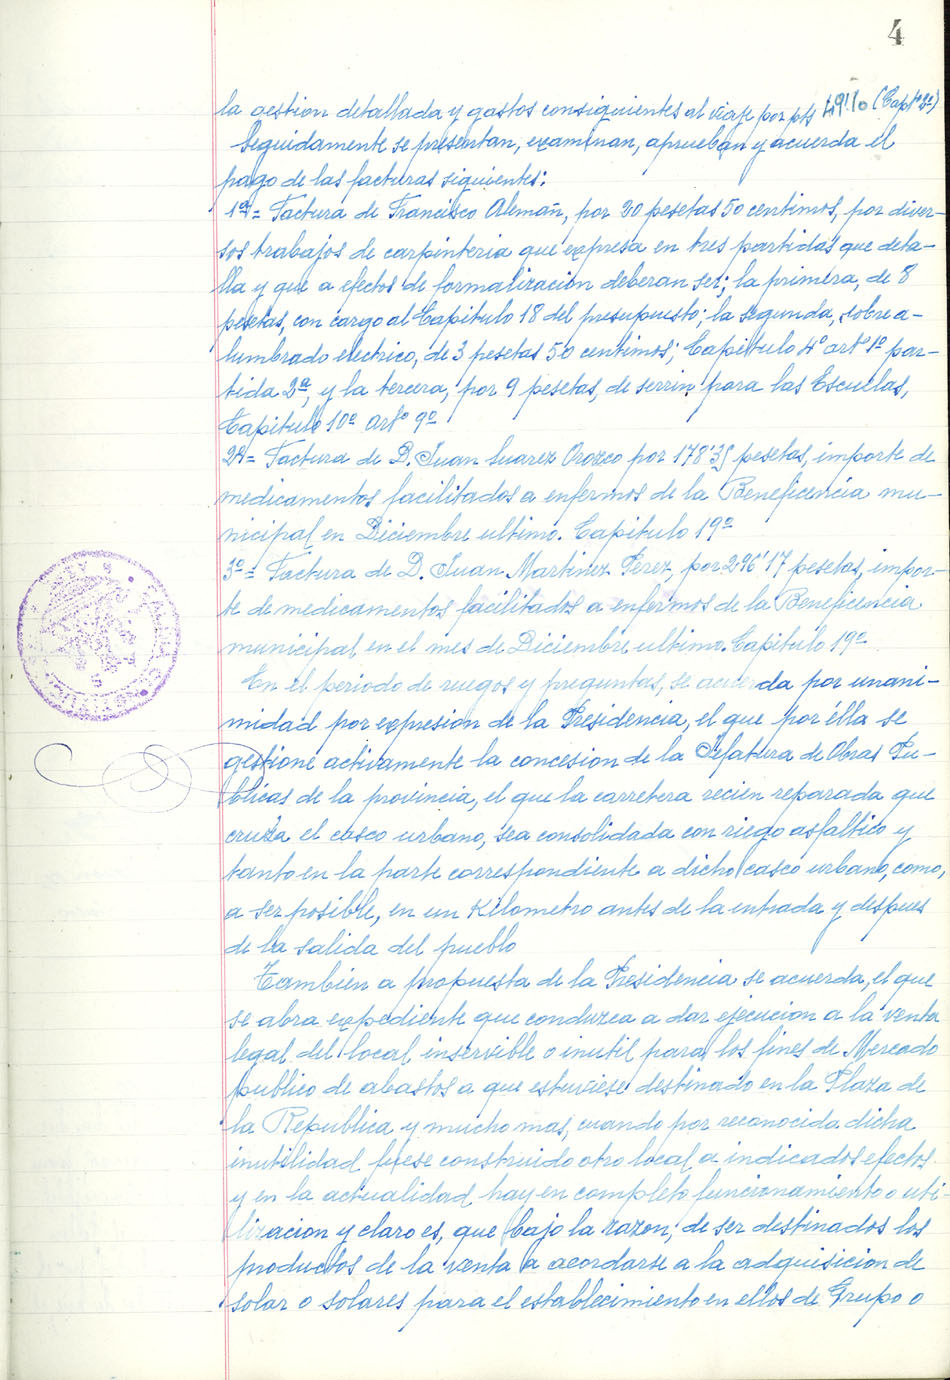 4
la gestion detallada y gastos consiguientes al viaje por pts 49'10 (Capto 2º)
Seguidamente se presentan, examinan, aprueban y acuerda el
pago de las facturas siguientes:
1ª= Factura de Francisco Alemañ, por 20 pesetas 50 centimos, por diver-
sos trabajos de carpinteria que expresa en tres partidas que deta-
lla y que a efectos de formalizacion deberan ser; la primera, de 8
pesetas, con cargo al Capitulo 18 del presupuesto; la segunda, sobre a-
lumbrado electrico, de 3 pesetas 50 centimos; Capitulo 4º artº 1º par-
tida 2ª, y la tercera, por 9 pesetas, de serrin para las Escuelas,
Capitulo 10º artº 9º
2ª= Factura de D. Juan Suarez Orozco por 178'35 pesetas, importe de
medicamentos facilitados a enfermos de la Beneficencia mu-
nicipal en Diciembre ultimo. Capitulo 19º
3º= Factura de D. Juan Martinez Perez, por 296'17 pesetas, impor-
te de medicamentos facilitados a enfermos de la Beneficencia
municipal en el mes de Diciembre ultimo. Capitulo 19º
En el periodo de ruegos y preguntas, se acuerda por unani-
midad por expresion de la Presidencia, el que por élla se
gestione activamente la concesion de la Jefatura de Obras Pu-
blicas de la provincia, el que la carretera recien reparada que
cruza el casco urbano, sea consolidada con riego asfaltico y
tanto en la parte correspondiente a dicho casco urbano, como,
a ser posible, en un Kilometro antes de la entrada y despues
de la salida del pueblo
Tambien a propuesta de la Presidencia se acuerda, el que
se abra expediente que conduzca a dar ejecucion a la venta
legal del local inservible o inutil para los fines de Mercado
publico de abastos a que estuviese destinado en la Plaza de
la Republica y mucho mas, cuando por reconocida dicha
inutilidad fuese construido otro local a indicados efectos
y en la actualidad hay en completo funcionamiento o uti
lizacion y claro es, que bajo la razon, de ser destinados los
productos de la venta a acordarse a la adquisicion de
solar o solares para el establecimiento en ellos de Grupo o